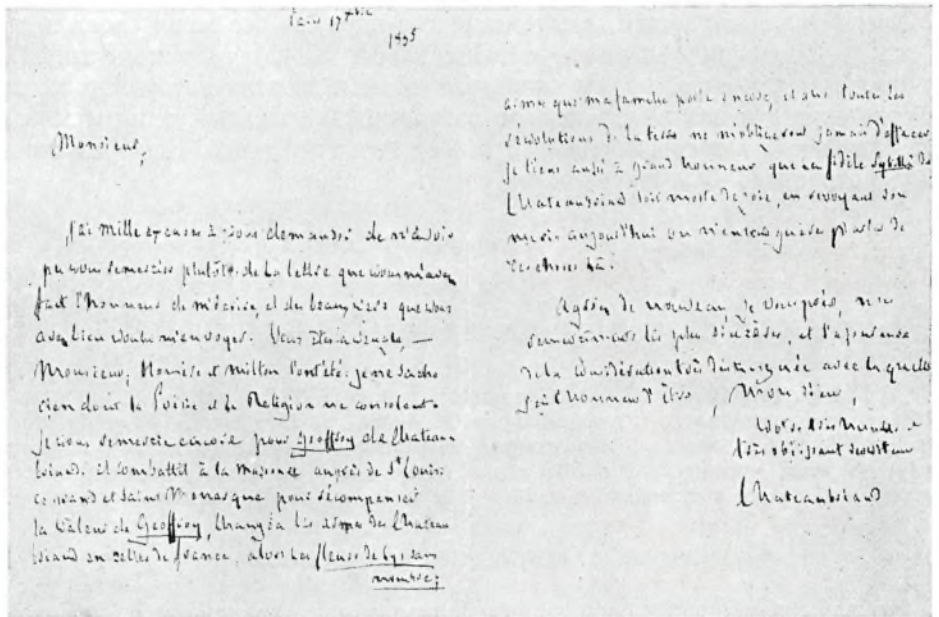 Paris 17 Xbre
1835
Monsieur,
J'ai mille excuses à vous demander de n'avoir
pu vous remercier plutôt de la lettre que vous m'avez
fait l'honneur de m'écrire, et des beaux vers que vous
avez bien voulu m'envoyer. Vous êtes aveugle, —
Monsieur; Homère et Milton l'ont été: je ne sache
rien dont la Poésie et la Religion ne consolent.
Je vous remercie encore pour Geoffroy de Chateau
briand. il combattit à la Massoure auprès de St Louis.
ce grand et saint Monarque pour récompenser
la valeur de Geoffroy, changea les armes des Chateau
briand en celles de france, alors les fleurs de lys sans
nombre;
armes que ma famille porte encore, et que toutes les
révolutions de la terre ne m'obligeront jamais d'effacer
je tiens aussi à grand honneur que la fidèle Sybille de
Chateaubriand soit morte de joie, en revoyant son
mari. aujourd'hui on n'entend guère parler de
ces choses là.
Agréez de nouveau, je vous prie, mes
remerciements les plus sincères, et l'assurance
de la considération très distinguée avec laquelle
j'ai l'honneur d'être, Monsieur,
Votre très humble et
très obéissant serviteur
Chateaubriand